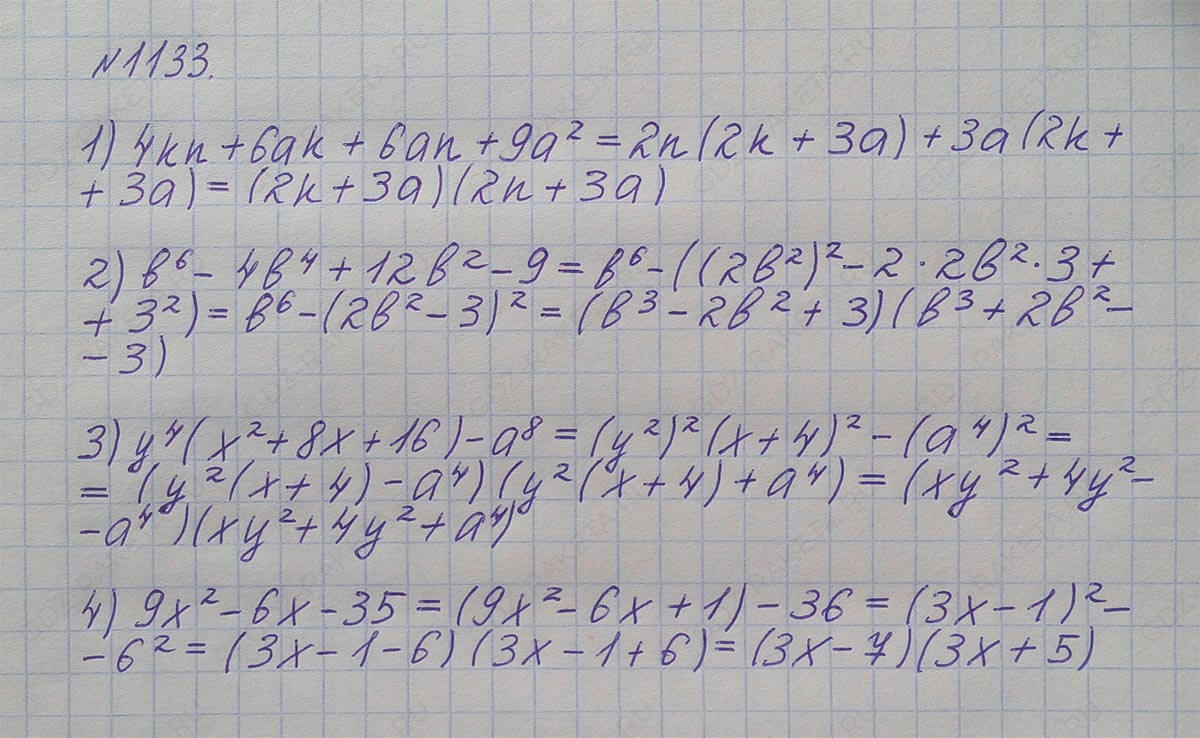 N1133.
1) 4kn + 6ak + 6an + 9a² = 2n(2k + 3a) + 3a(2k +
+ 3a) = (2k + 3a)(2n + 3a)
2) b⁶ - 4b⁴ + 12b² - 9 = b⁶ - ((2b²)² - 2 · 2b² · 3 +
+ 3²) = b⁶ - (2b² - 3)² = (b³ - 2b² + 3)(b³ + 2b² -
- 3)
3) y⁴(x² + 8x + 16) - a⁸ = (y²)²(x + 4)² - (a⁴)² =
= (y²(x + 4) - a⁴)(y²(x + 4) + a⁴) = (xy² + 4y² -
- a⁴)(xy² + 4y² + a⁴)
4) 9x² - 6x - 35 = (9x² - 6x + 1) - 36 = (3x - 1)² -
- 6² = (3x - 1 - 6)(3x - 1 + 6) = (3x - 7)(3x + 5)